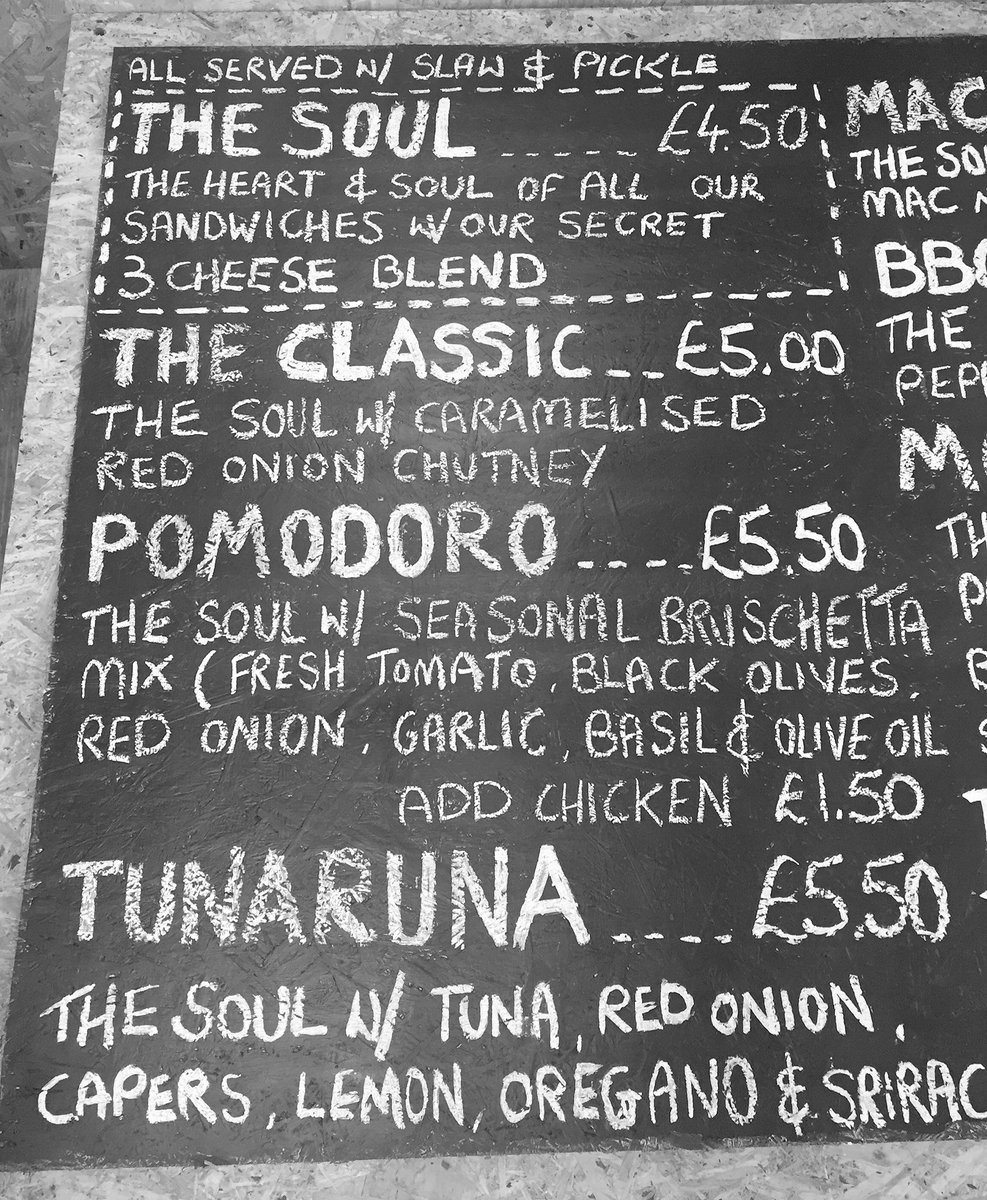 ALL SERVED W/ SLAW & PICKLE
THE SOUL ----- £4.50
THE HEART & SOUL OF ALL OUR
SANDWICHES W/ OUR SECRET
3 CHEESE BLEND
THE CLASSIC -- £5.00
THE SOUL W/ CARAMELISED
RED ONION CHUTNEY
POMODORO ---- £5.50
THE SOUL W/ SEASONAL BRUSCHETTA
MIX (FRESH TOMATO, BLACK OLIVES,
RED ONION, GARLIC, BASIL & OLIVE OIL
ADD CHICKEN £1.50
TUNARUNA ---- £5.50
THE SOUL W/ TUNA, RED ONION,
CAPERS, LEMON, OREGANO & SRIRAC
MAC
THE SO
MAC
BB
THE
PEP
M
TH
P